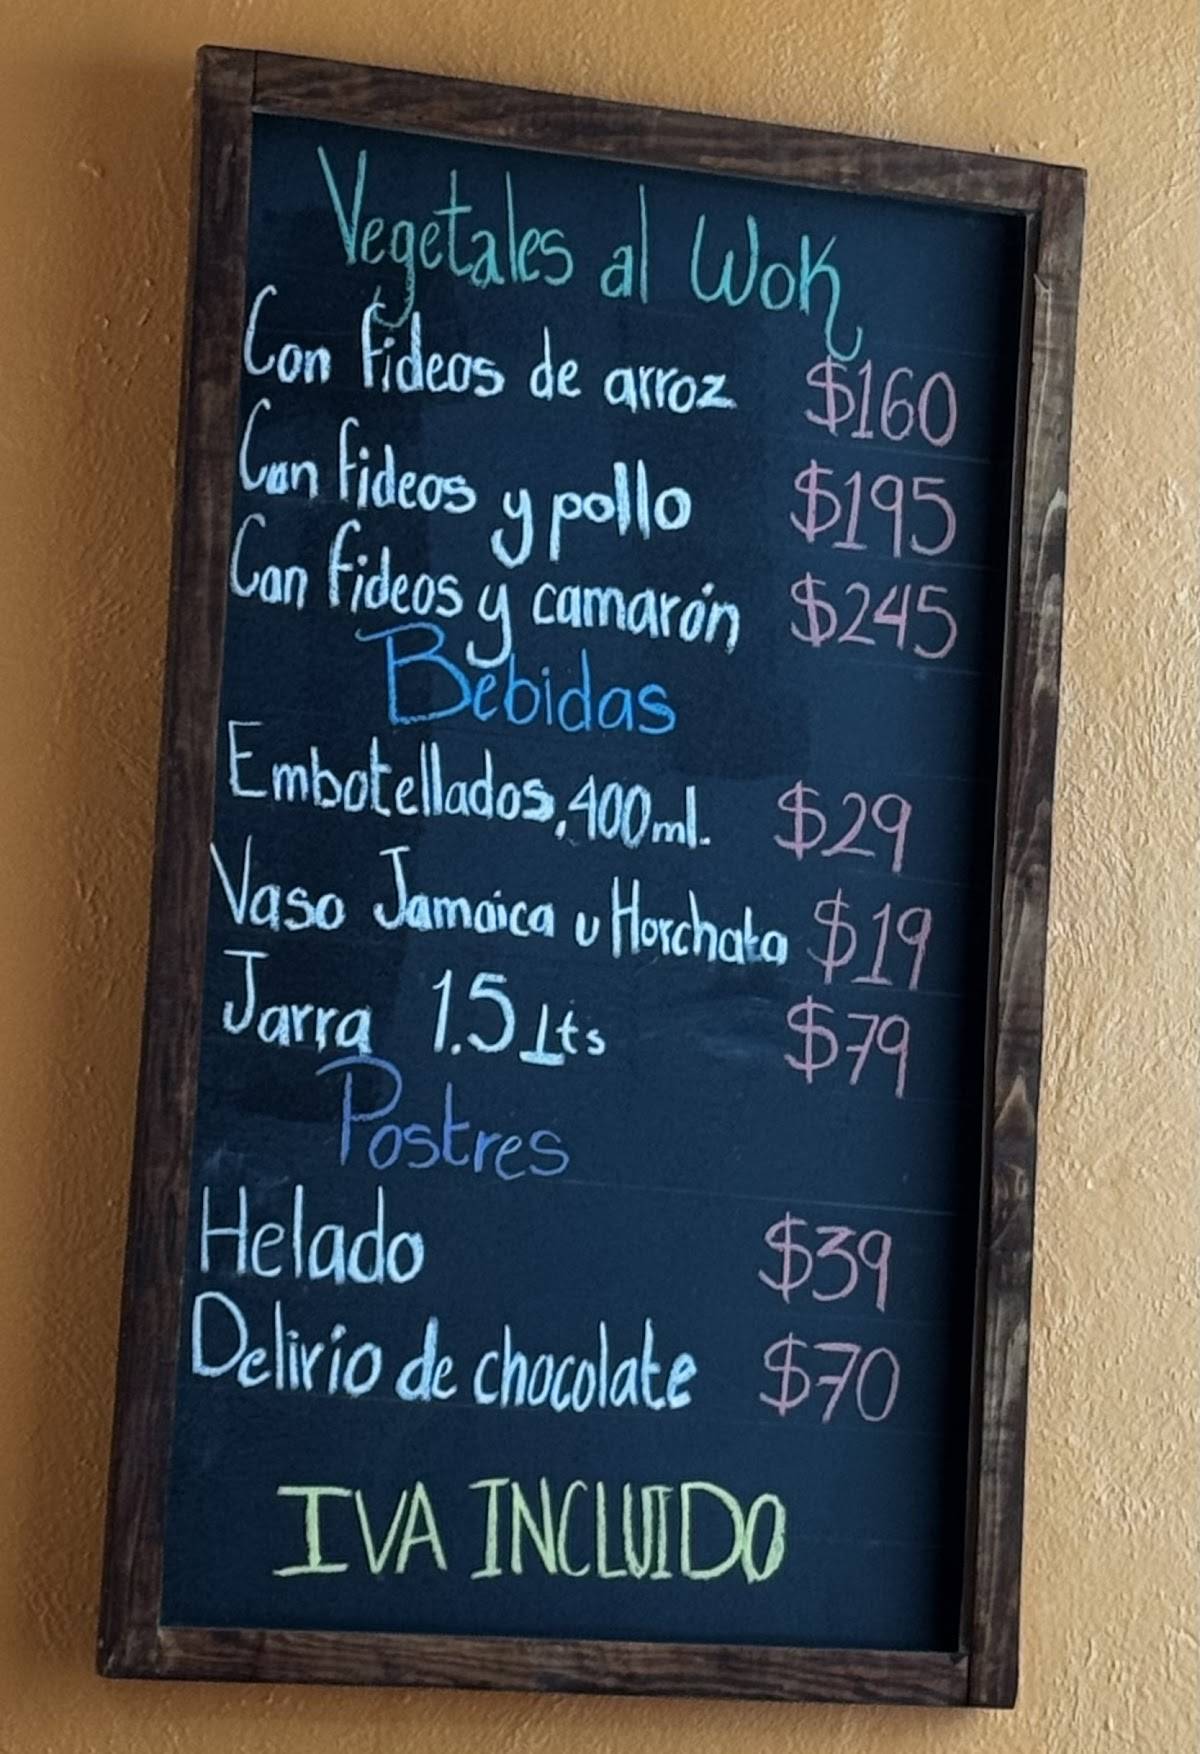 Vegetales al Wok
Con fideos de arroz $160
Con fideos y pollo $195
Con fideos y camarón $245
Bebidas
Embotellados, 400ml. $29
Vaso Jamaica u Horchata $19
Jarra 1.5 Lts $79
Postres
Helado $39
Delirio de chocolate $70
IVA INCLUIDO